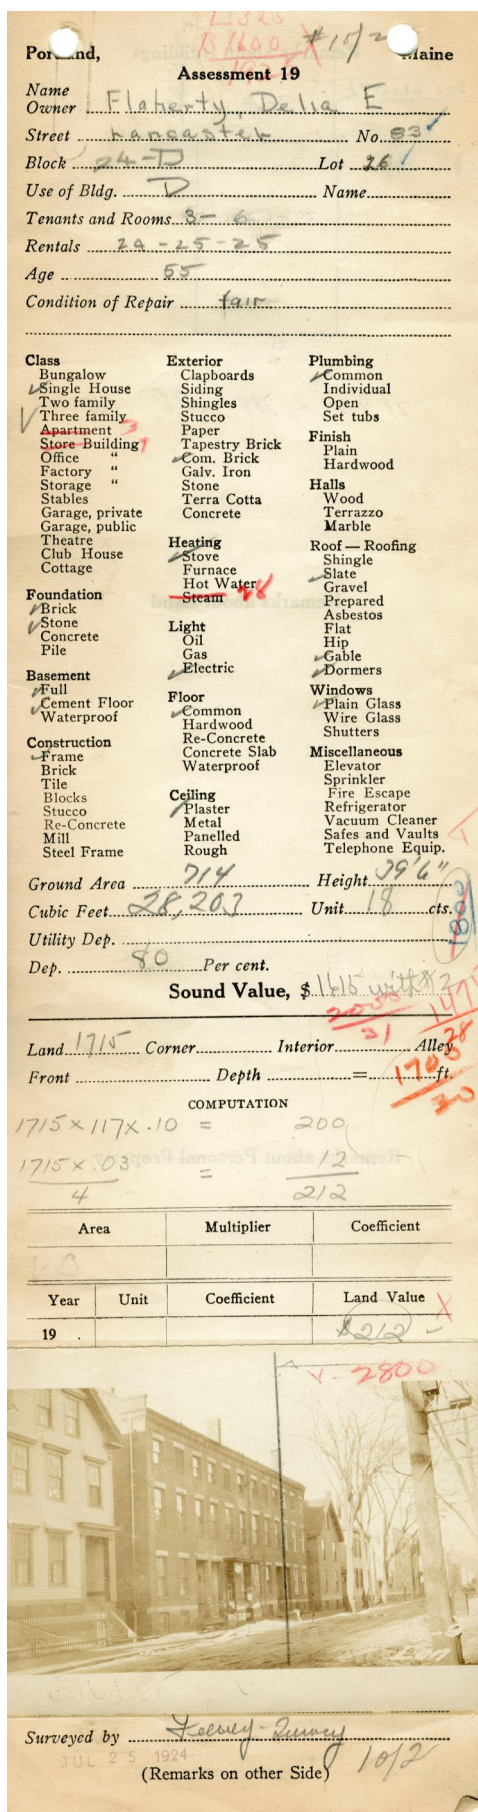 L 325
B 1600
1925
#10/2
Portland, Maine
Assessment 19
Name
Owner Flaherty, Delia E
Street Lancaster No. 83
Block 24-D Lot 26
Use of Bldg. D Name
Tenants and Rooms 3- 6
Rentals 24-25-25
Age 55
Condition of Repair fair
Class
Bungalow
Single House
Two family
Three family
Apartment 3
Store Building
Office "
Factory "
Storage "
Stables
Garage, private
Garage, public
Theatre
Club House
Cottage
Foundation
Brick
Stone
Concrete
Pile
Basement
Full
Cement Floor
Waterproof
Construction
Frame
Brick
Tile
Blocks
Stucco
Re-Concrete
Mill
Steel Frame
Exterior
Clapboards
Siding
Shingles
Stucco
Paper
Tapestry Brick
Com. Brick
Galv. Iron
Stone
Terra Cotta
Concrete
Heating
Stove
Furnace
Hot Water
Steam 28
Light
Oil
Gas
Electric
Floor
Common
Hardwood
Re-Concrete
Concrete Slab
Waterproof
Ceiling
Plaster
Metal
Panelled
Rough
Plumbing
Common
Individual
Open
Set tubs
Finish
Plain
Hardwood
Halls
Wood
Terrazzo
Marble
Roof — Roofing
Shingle
Slate
Gravel
Prepared
Asbestos
Flat
Hip
Gable
Dormers
Windows
Plain Glass
Wire Glass
Shutters
Miscellaneous
Elevator
Sprinkler
Fire Escape
Refrigerator
Vacuum Cleaner
Safes and Vaults
Telephone Equip.
Ground Area 714 Height 39'6"
Cubic Feet 28,203 Unit 18 cts.
1800
Utility Dep.
Dep. 80 Per cent.
Sound Value, $ 1615 with $2
2000
31
1475
28
Land 1715 Corner Interior Alley
1700
30
Front Depth = ft.
COMPUTATION
1715 x 117 x .10 = 200
1715 x .03 = 12
4 212
Area Multiplier Coefficient
Year Unit Coefficient Land Value
19 . $212 -
2800
Surveyed by
JUL 25 1924
10/2
(Remarks on other Side)